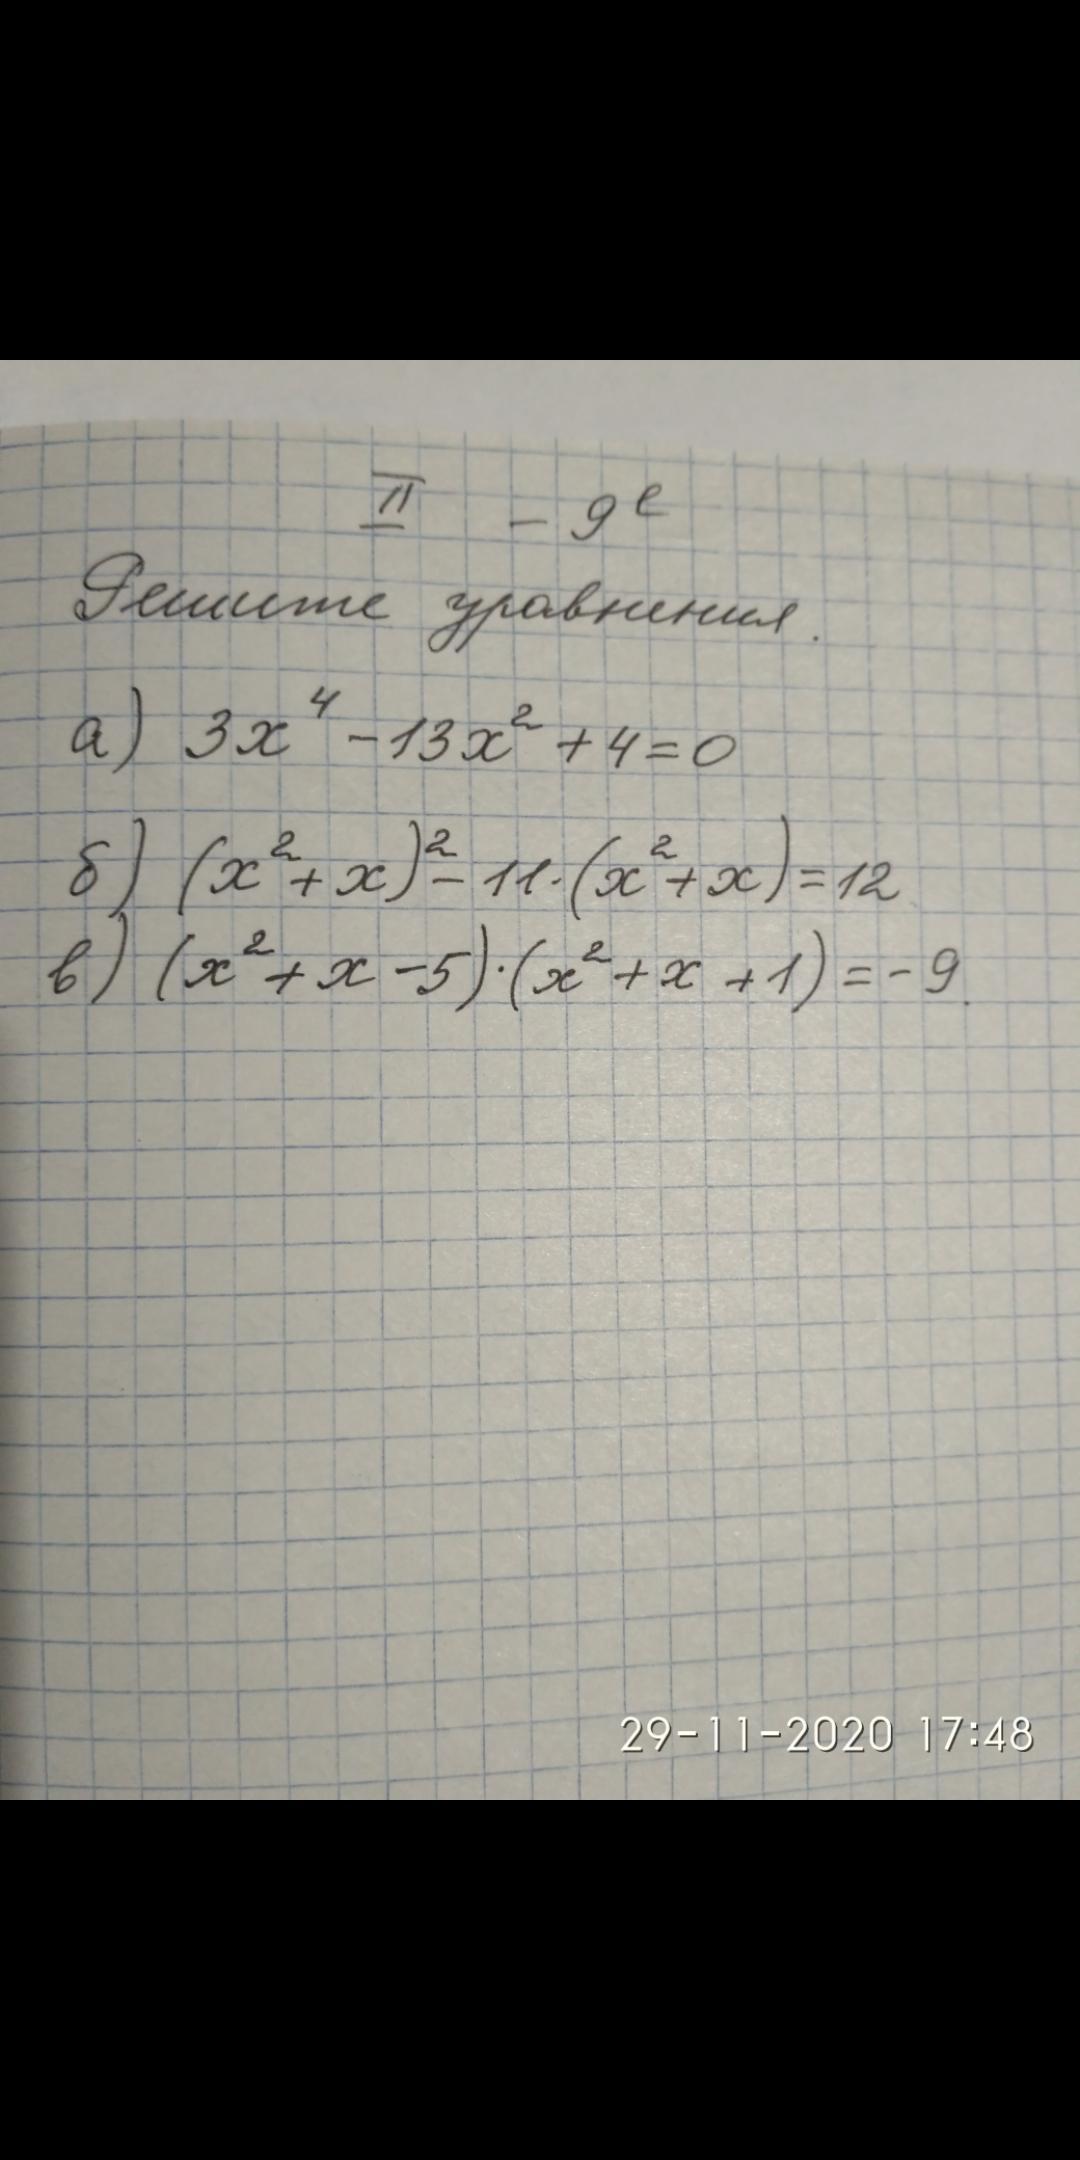 II - 9е
Решите уравнения.
а) 3x⁴ - 13x² + 4 = 0
б) (x² + x)² - 11·(x² + x) = 12
в) (x² + x - 5)·(x² + x + 1) = -9.
29-11-2020 17:48